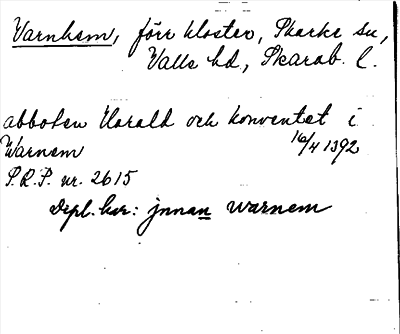 Varnhem, förr kloster, Skarke sn,
Valle hd, Skarab. l.
abboten Harald och konventet i
Warnem 16/4 1392
S.R.P. nr. 2615
Depl. har: jnnan warnem